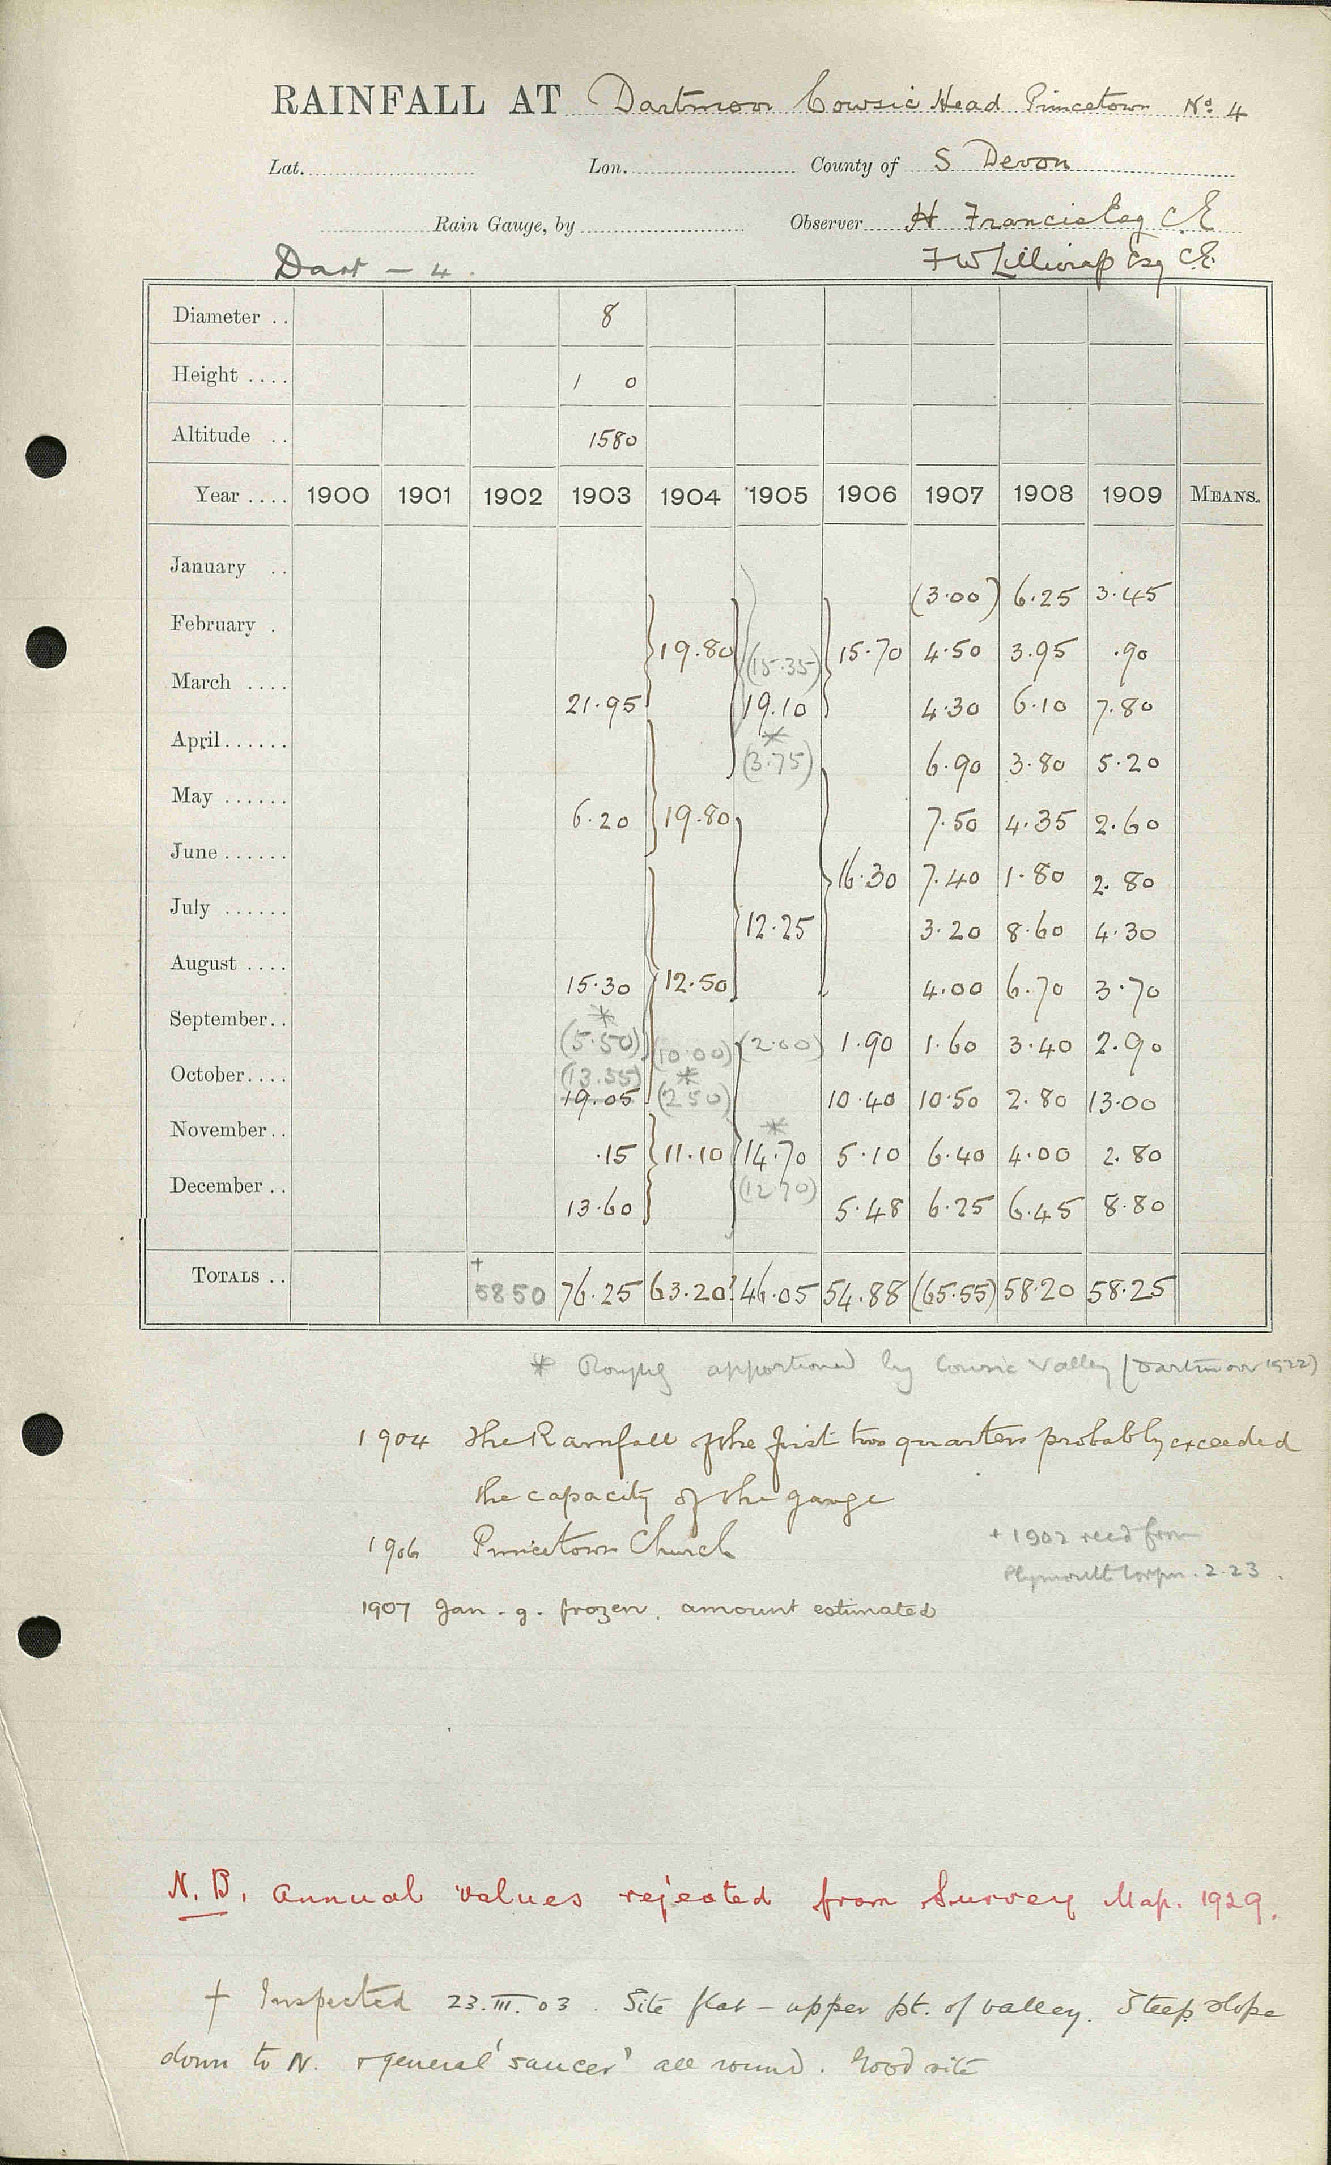 RAINFALL AT Dartmoor Cowsic Head Princetown No. 4
Lat. Lon. County of S Devon
Rain Gauge, by Observer H Francis Esq C.E
Dart - 4. F W Lilliecrap Esq C.E.
Diameter .. 8
Height .... 1 0
Altitude .. 1580
Year .... 1900 1901 1902 1903 1904 1905 1906 1907 1908 1909 MEANS.
January .. (3.00) 6.25 3.45
February . 19.80 (15.35) 15.70 4.50 3.95 .90
March .... 21.95 19.10 4.30 6.10 7.80
April...... * (3.75) 6.90 3.80 5.20
May ...... 6.20 19.80 7.50 4.35 2.60
June ...... 16.30 7.40 1.80 2.80
July ...... 12.25 3.20 8.60 4.30
August .... 15.30 12.50 4.00 6.70 3.70
September.. * (5.50) (10.00) (2.00) 1.90 1.60 3.40 2.90
October.... (13.55) 19.05 * (2.50) 10.40 10.50 2.80 13.00
November.. .15 11.10 * 14.70 5.10 6.40 4.00 2.80
December .. 13.60 (12.70) 5.48 6.25 6.45 8.80
TOTALS .. + 58 50 76.25 63.20? 46.05 54.88 (65.55) 58.20 58.25
* Roughly apportioned by Cowsic Valley (Dartmoor 1922)
1904 The Rainfall of the first two quarters probably exceeded
the capacity of the gauge
1906 Princetown Church
+ 1902 recd from
Plymouth Corpn. 2.23.
1907 Jan. g. frozen, amount estimated
N.B. Annual values rejected from Survey Map. 1929.
† Inspected 23.III.03. Site flat - upper pt. of valley. Steep slope
down to N. + general 'saucer' all round. Good site